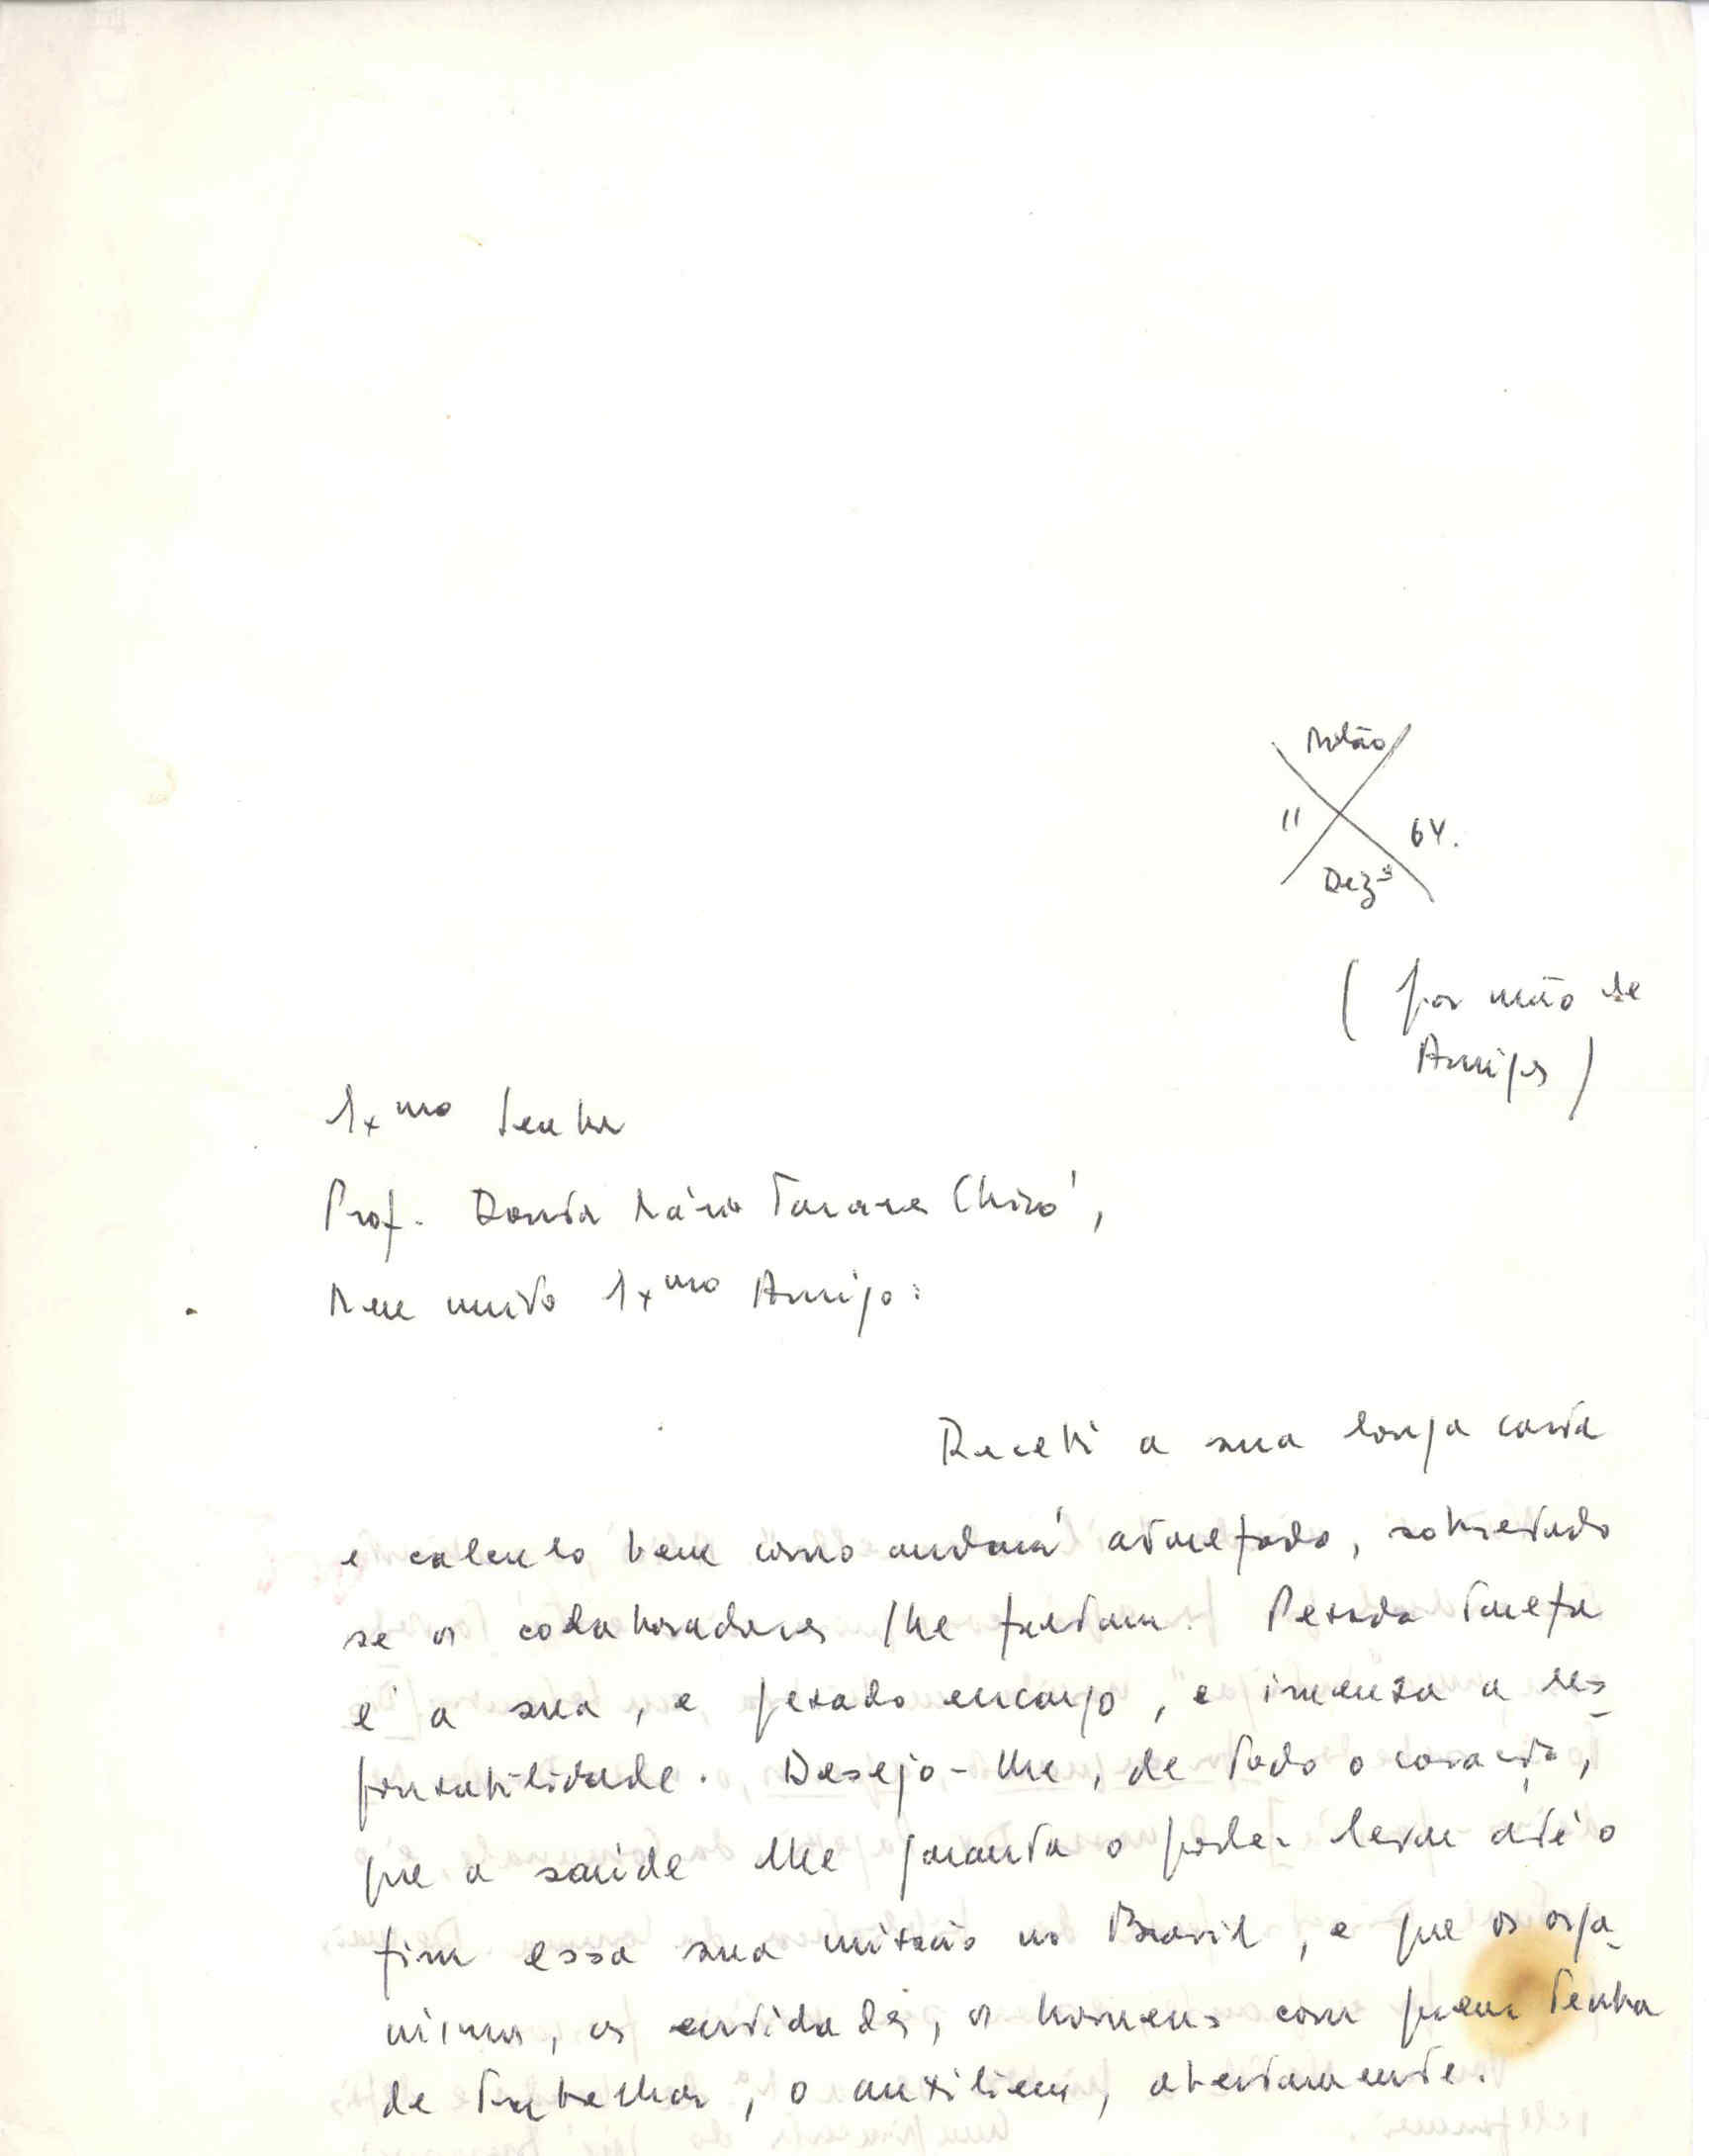 Milão
11 64.
Dezº
(por mão de
Amigos)
Exmo Senhor
Prof. Doutor Mário Tavares Chicó,
Meu muito Exmo Amigo:
Recebi a sua longa carta
e calculo bem como andará atarefado, sobretudo
se os colaboradores lhe faltam. Pesada tarefa
é a sua, e pesado encargo, e imensa a res-
ponsabilidade. Desejo-lhe, de todo o coração,
que a saúde lhe garanta o poder levar até o
fim essa sua missão no Brasil, e que os orga-
nismos, as entidades, os homens com quem tenha
de trabalhar, o auxiliem, abertamente.